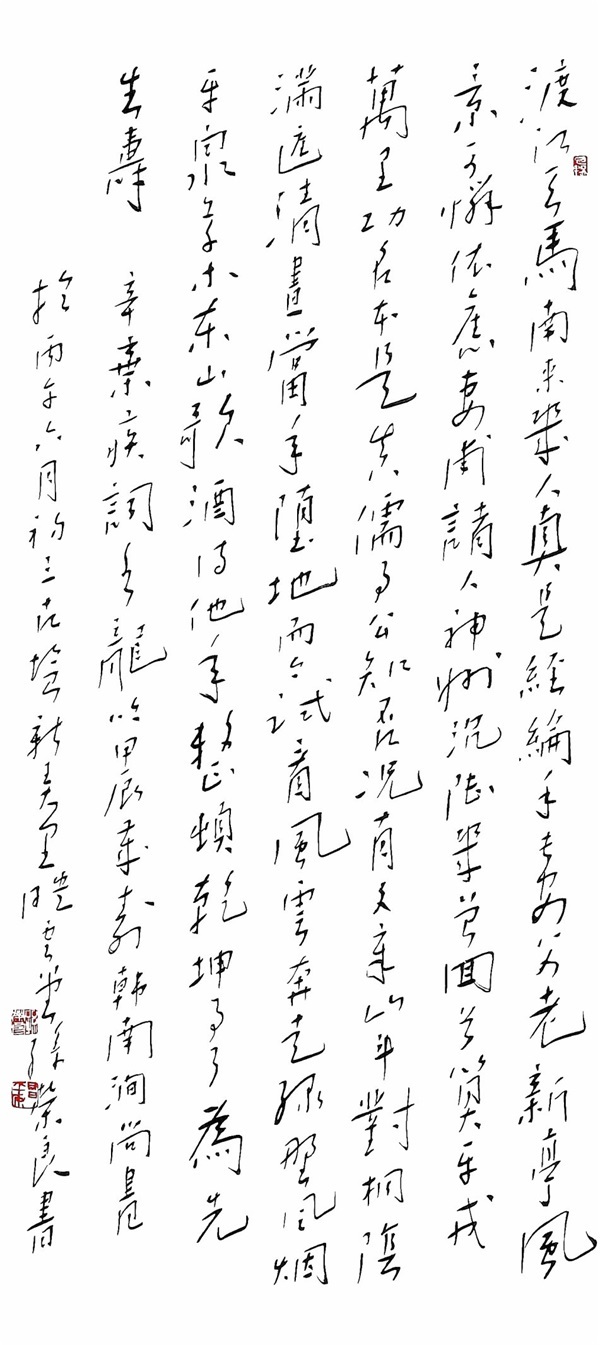 渡江天馬南来幾人真是經綸手長安父老新亭風
景可憐依舊夷甫諸人神州沉陸幾曾回首算平戎
萬里功名本是真儒事公知否況有文章山斗對桐陰
滿庭清晝當年墮地而今試看風雲奔走綠野風烟
平泉草木東山歌酒待他年整頓乾坤事了為先
生壽 辛棄疾詞水龍吟甲辰歲壽韓南澗尚書
於丙午六月初三古新里雲堂榮良書